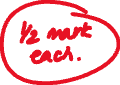 ½ mark
each.